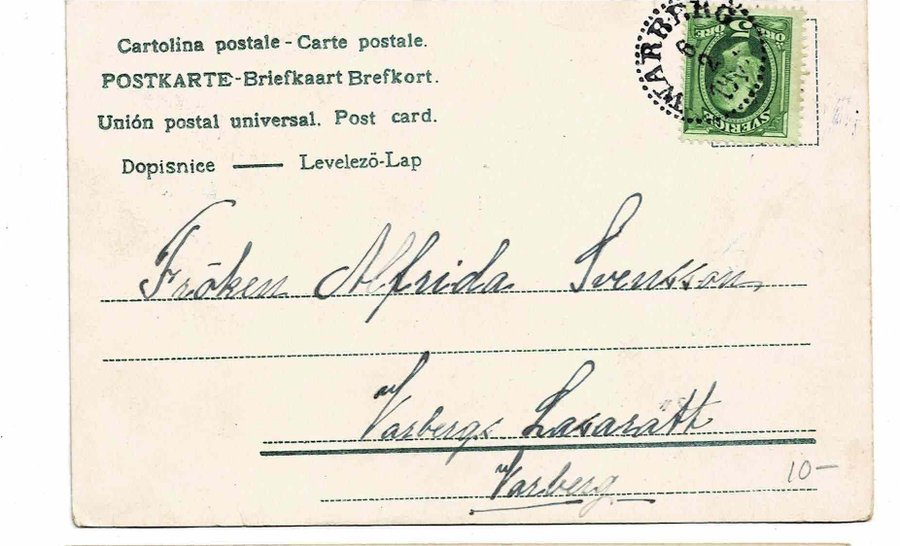 Cartolina postale - Carte postale.
POSTKARTE - Briefkaart Brefkort.
Unión postal universal. Post card.
Dopisnice — Levelezö-Lap
WARBERG
6
2
5 ÖRE
SVERIGE
Fröken Alfrida Svensson,
Varbergs Lasarätt
Varberg
10 –